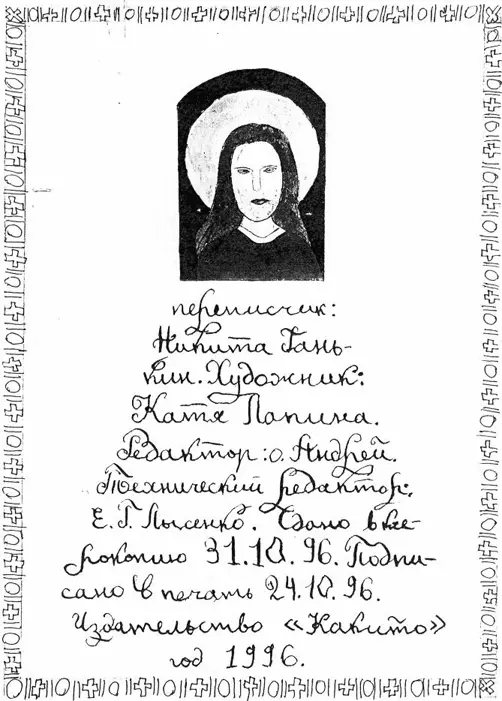 переписчик:
Никита Гань-
кин. Художник:
Катя Лапина.
Редактор: о. Андрей.
Технический редактор:
Е. Г. Лысенко. Сдано в ксе-
рокопию 31.10.96. Подпи-
сано в печать 24.10.96.
Издательство «Какито»
год 1996.